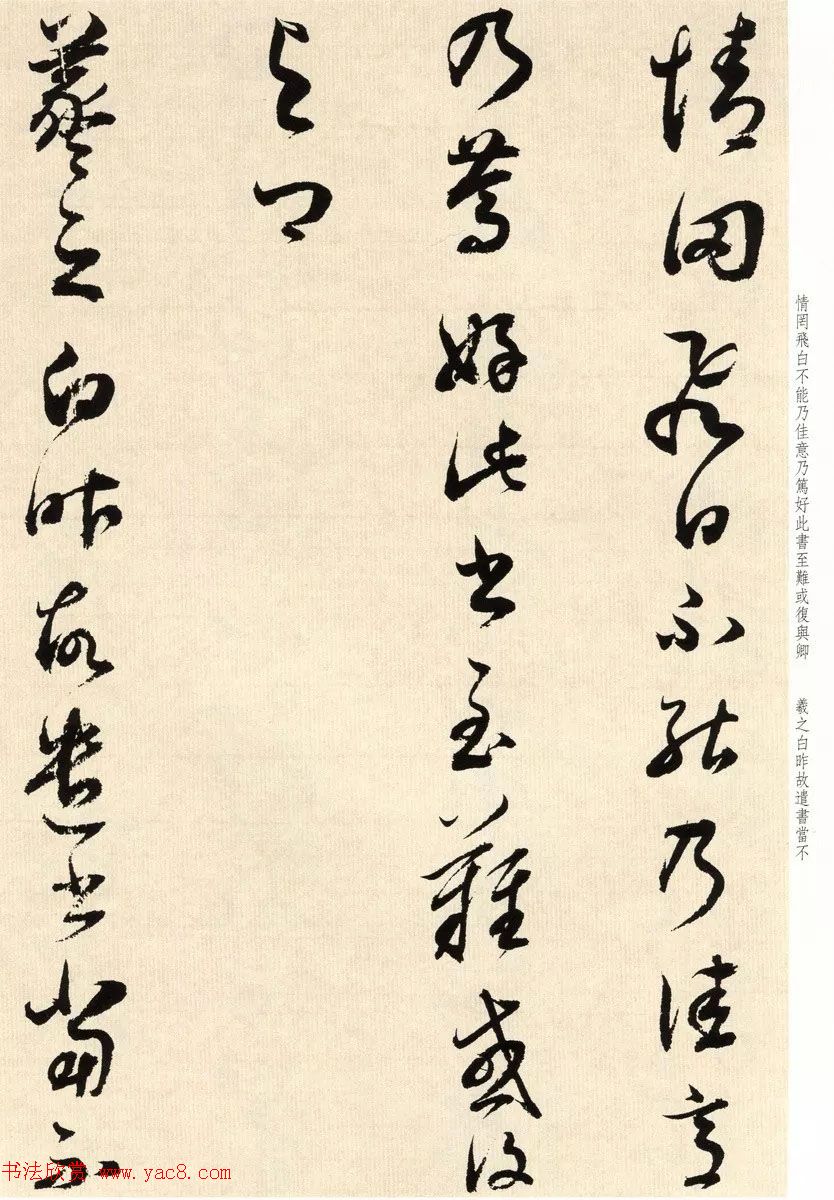 情罔飛白不能乃佳意
乃篤好此書至難或復
與卿
羲之白昨故遣書當不
情罔飛白不能乃佳意乃篤好此書至難或復與卿　羲之白昨故遣書當不
书法欣赏 www.yac8.com